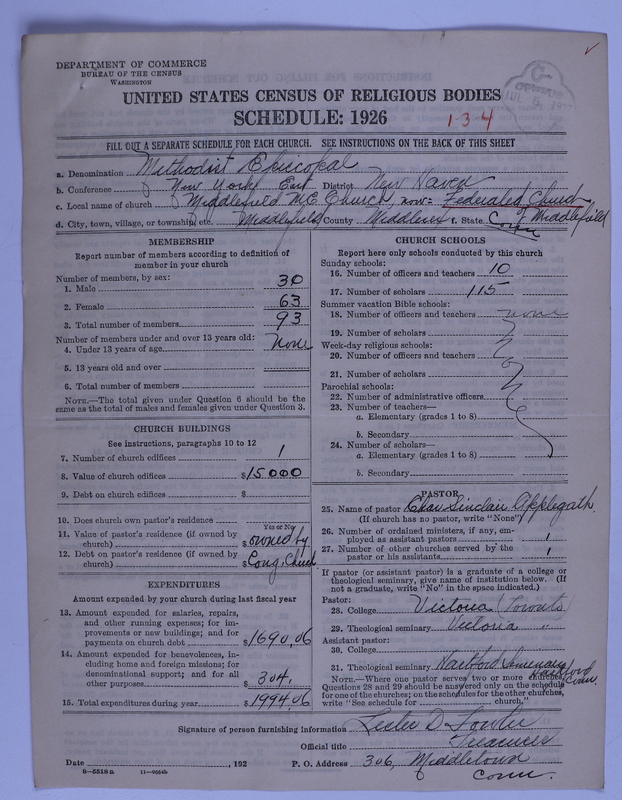 DEPARTMENT OF COMMERCE
BUREAU OF THE CENSUS
WASHINGTON
UNITED STATES CENSUS OF RELIGIOUS BODIES
SCHEDULE: 1926
134
FILL OUT A SEPARATE SCHEDULE FOR EACH CHURCH. SEE INSTRUCTIONS ON THE BACK OF THIS SHEET
a. Denomination Methodist Episcopal
b. Conference New York East District New Haven
c. Local name of church Middlefield M.E. Church, now = Federated Church of Middlefield
d. City, town, village, or township, etc. Middlefield County Middlesex f. State Conn
MEMBERSHIP
Report number of members according to definition of member in your church
Number of members, by sex:
1. Male 30
2. Female 63
3. Total number of members 93
Number of members under and over 13 years old:
4. Under 13 years of age none
5. 13 years old and over
6. Total number of members
NOTE.—The total given under Question 6 should be the same as the total of males and females given under Question 3.
CHURCH BUILDINGS
See instructions, paragraphs 10 to 12
7. Number of church edifices 1
8. Value of church edifices $15000
9. Debt on church edifices $
10. Does church own pastor's residence
Yes or No
11. Value of pastor's residence (if owned by church) $ owned by
12. Debt on pastor's residence (if owned by church) $ Cong. Church
EXPENDITURES
Amount expended by your church during last fiscal year
13. Amount expended for salaries, repairs, and other running expenses; for improvements or new buildings; and for payments on church debt $1690,06
14. Amount expended for benevolences, including home and foreign missions; for denominational support; and for all other purposes $304,
15. Total expenditures during year $1994 06
CHURCH SCHOOLS
Report here only schools conducted by this church
Sunday schools:
16. Number of officers and teachers 10
17. Number of scholars 115
Summer vacation Bible schools:
18. Number of officers and teachers none
19. Number of scholars
Week-day religious schools:
20. Number of officers and teachers
21. Number of scholars
Parochial schools:
22. Number of administrative officers
23. Number of teachers—
a. Elementary (grades 1 to 8)
b. Secondary
24. Number of scholars—
a. Elementary (grades 1 to 8)
b. Secondary
PASTOR
25. Name of pastor Chas Sinclair Applegath
(If church has no pastor, write "None")
26. Number of ordained ministers, if any, employed as assistant pastors 1
27. Number of other churches served by the pastor or his assistants 1
If pastor (or assistant pastor) is a graduate of a college or theological seminary, give name of institution below. (If not a graduate, write "No" in the space indicated.)
Pastor:
28. College Victoria
29. Theological seminary Victoria "
Assistant pastor:
30. College
31. Theological seminary Hartford Seminary Hartford Conn.
NOTE.—Where one pastor serves two or more churches, Questions 28 and 29 should be answered only on the schedule for one of the churches; on the schedules for the other churches, write "See schedule for church."
Signature of person furnishing information Lester D. Fowler
Official title Treasurer
Date , 192 P. O. Address 306, Middletown
Conn.
8—5518 B 11—9664b